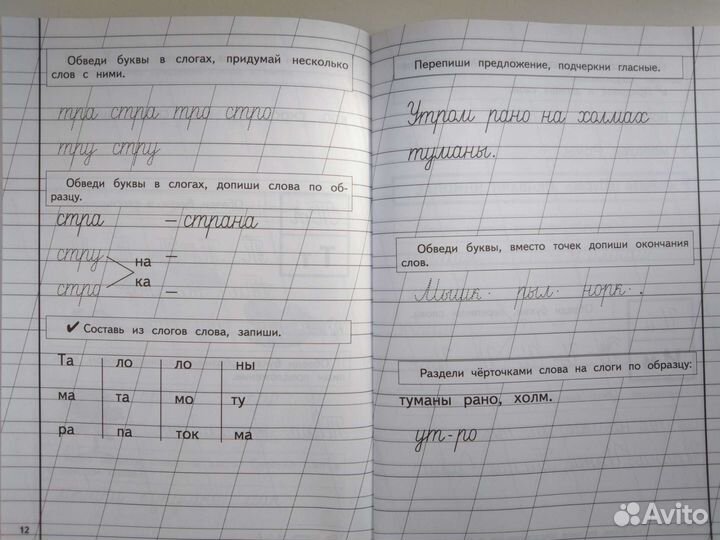 Обведи буквы в слогах, придумай несколько
слов с ними.
тра стра тро стро
тру стру
Обведи буквы в слогах, допиши слова по об-
разцу.
стра – страна
стру на –
стро ка –
✔ Составь из слогов слова, запиши.
Та ло ло ны
ма та мо ту
ра па ток ма
12
Перепиши предложение, подчеркни гласные.
Утром рано на холмах
туманы.
Обведи буквы, вместо точек допиши окончания
слов.
Мышк. рыл. норк..
Раздели чёрточками слова на слоги по образцу:
туманы рано, холм.
ут-ро
Avito